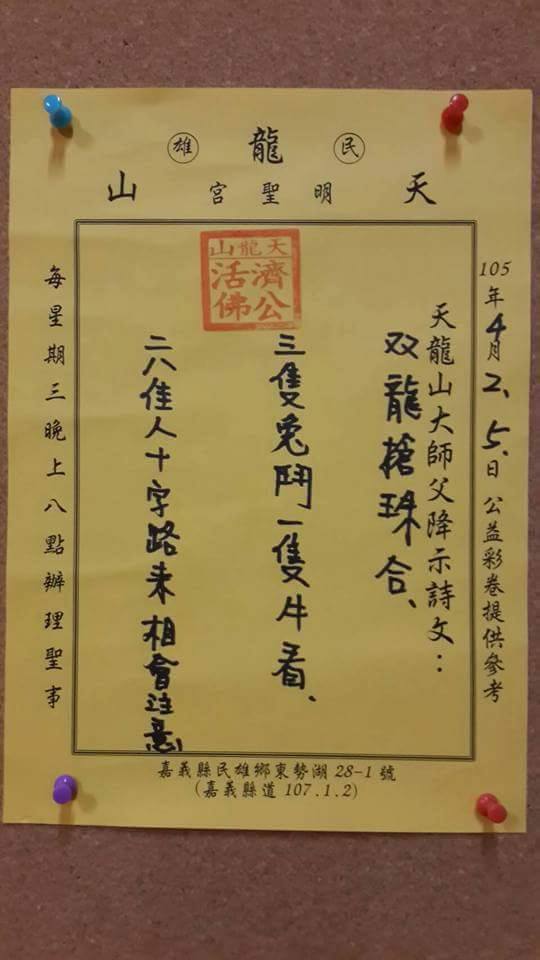 雄 龍 民
山 宮聖明 天
105年4月2、5、日 公益彩卷提供參考
天龍山大師父降示詩文：
双龍槍珠合、
三隻兎鬥一隻牛看、
二八佳人十字路來相會注意
天龍山
濟公活佛
每星期三晚上八點辦理聖事
嘉義縣民雄鄉東勢湖 28-1 號
(嘉義縣道 107.1.2)